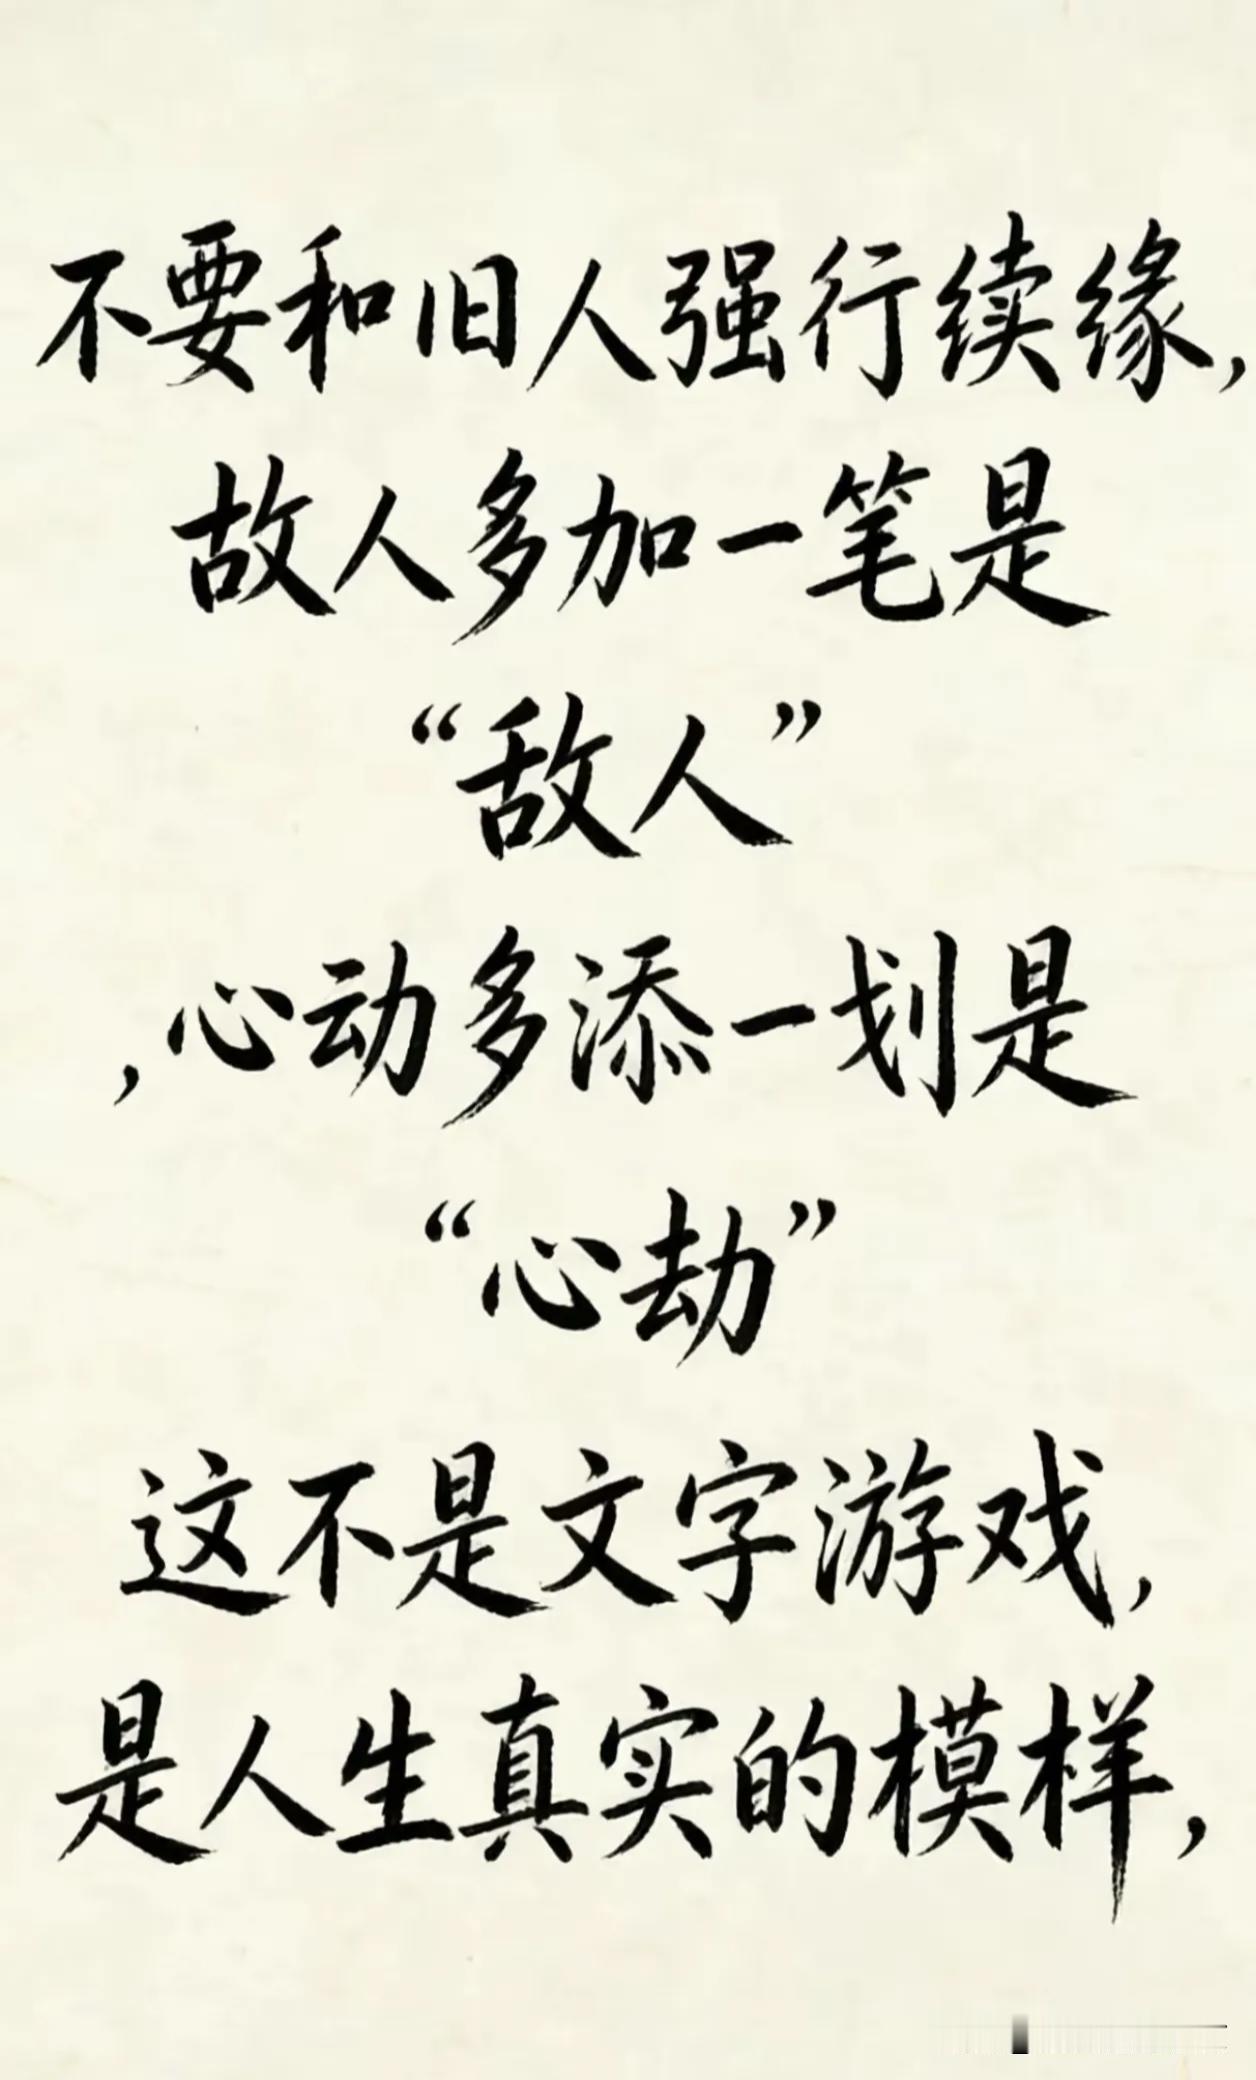 不要和旧人强行续缘,
故人多加一笔是
“敌人”
,心动多添一划是
“心劫”
这不是文字游戏,
是人生真实的模样,